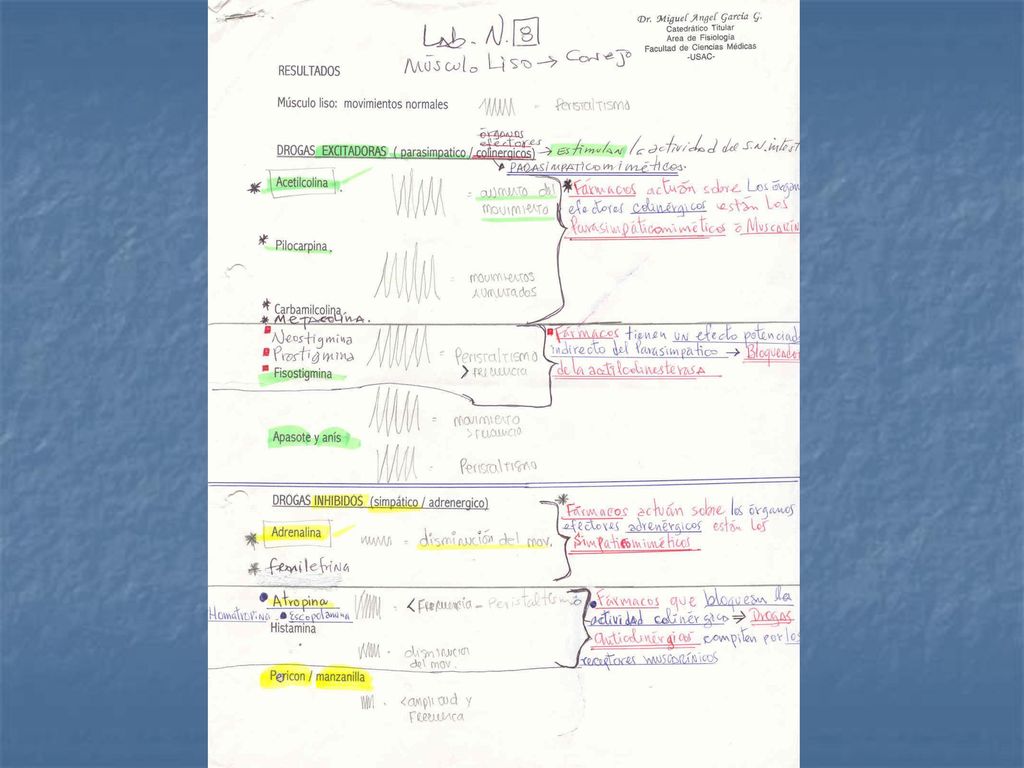 Dr. Miguel Angel García G.
Catedrático Titular
Area de Fisiología
Facultad de Ciencias Médicas
-USAC-
Lab. N. 8
Músculo Liso → Conejo
RESULTADOS
Músculo liso: movimientos normales = Peristaltismo
órganos
efectores
DROGAS EXCITADORAS ( parasimpatico / colinergicos) → Estimulan la actividad del S.N. intest
PARASIMPATICOMIMÉTICOS.
* Acetilcolina = aumento del
movimiento
* Fármacos actúan sobre Los órgan
efectores colinérgicos están los
Parasimpáticomiméticos o Muscarín
* Pilocarpina = movimientos
aumentados
* Carbamilcolina
* METACOLINA.
Neostigmina
Prostigmina
Fisostigmina
= Peristaltismo
> Frecuencia
Fármacos tienen un efecto potenciad
indirecto del Parasimpático → Bloqueador
de la acetilcolinesterasa
Apasote y anís
= movimiento
> frecuencia
Peristaltismo
DROGAS INHIBIDOS (simpático / adrenergico)
* Adrenalina = disminución del mov.
* fenilefrina
* Fármacos actúan sobre los órganos
efectores adrenérgicos están los
Simpaticomiméticos
• Atropina = < Frecuencia - Peristaltismo
Homatropina • Escopolamina
Histamina
disminución
del mov.
• Fármacos que bloquean la
actividad colinérgica → Drogas
anticolinérgicas compiten por los
receptores muscarínicos
Pericon / manzanilla
< amplitud y
Frecuencia